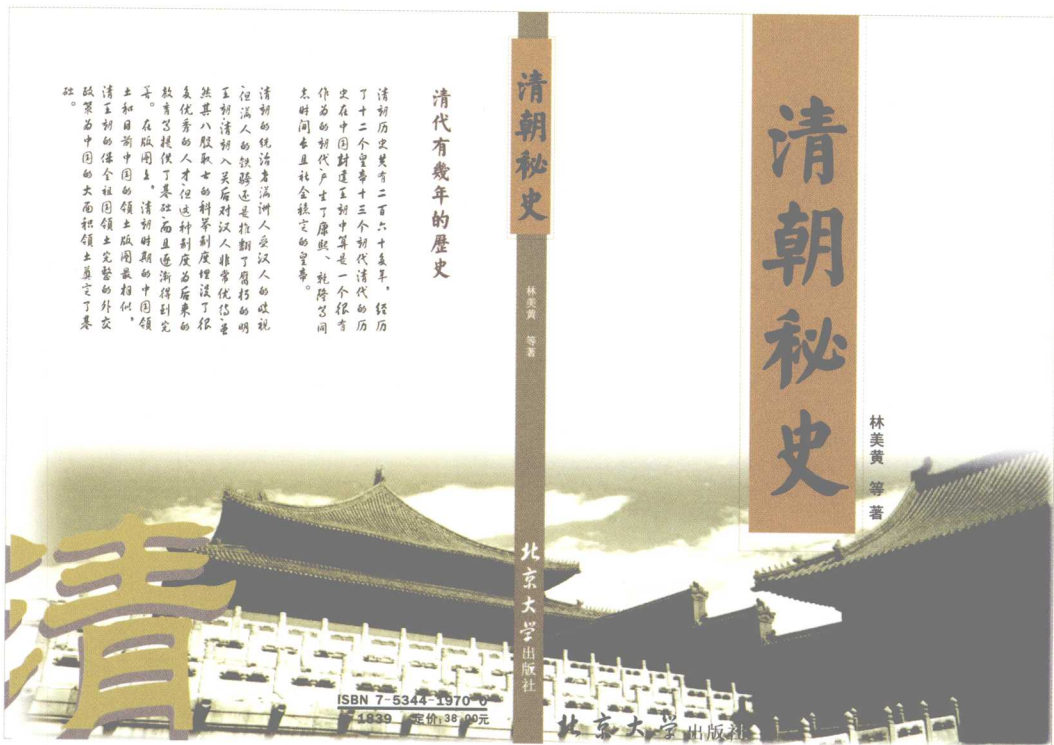 清朝秘史
林美黄 等 著
北京大学出版社
清朝秘史
林美黄 等著
北京大学出版社
清代有幾年的歷史
清朝历史共有二百六十多年，经历
了十二个皇帝十三个朝代清代的历
史在中国封建王朝中算是一个很有
作为的朝代产生了康熙、乾隆等同
志时间长且社会稳定的皇帝。
清朝的统治者满洲人受汉人的歧视
但满人的铁骑还是推翻了腐朽的明
王朝清朝入关后对汉人非常优待虽
然其八股取士的科举制度埋没了很
多优秀的人才但这种制度为后来的
教育等提供了基础而且逐渐得到完
善。在版图上，清朝时期的中国领
土和目前中国的领土版图最相似，
清王朝的保全祖国领土完整的外交
政策为中国的大面积领土奠定了基
础。
清
ISBN 7-5344-1970 0
1839 定价.38.00元